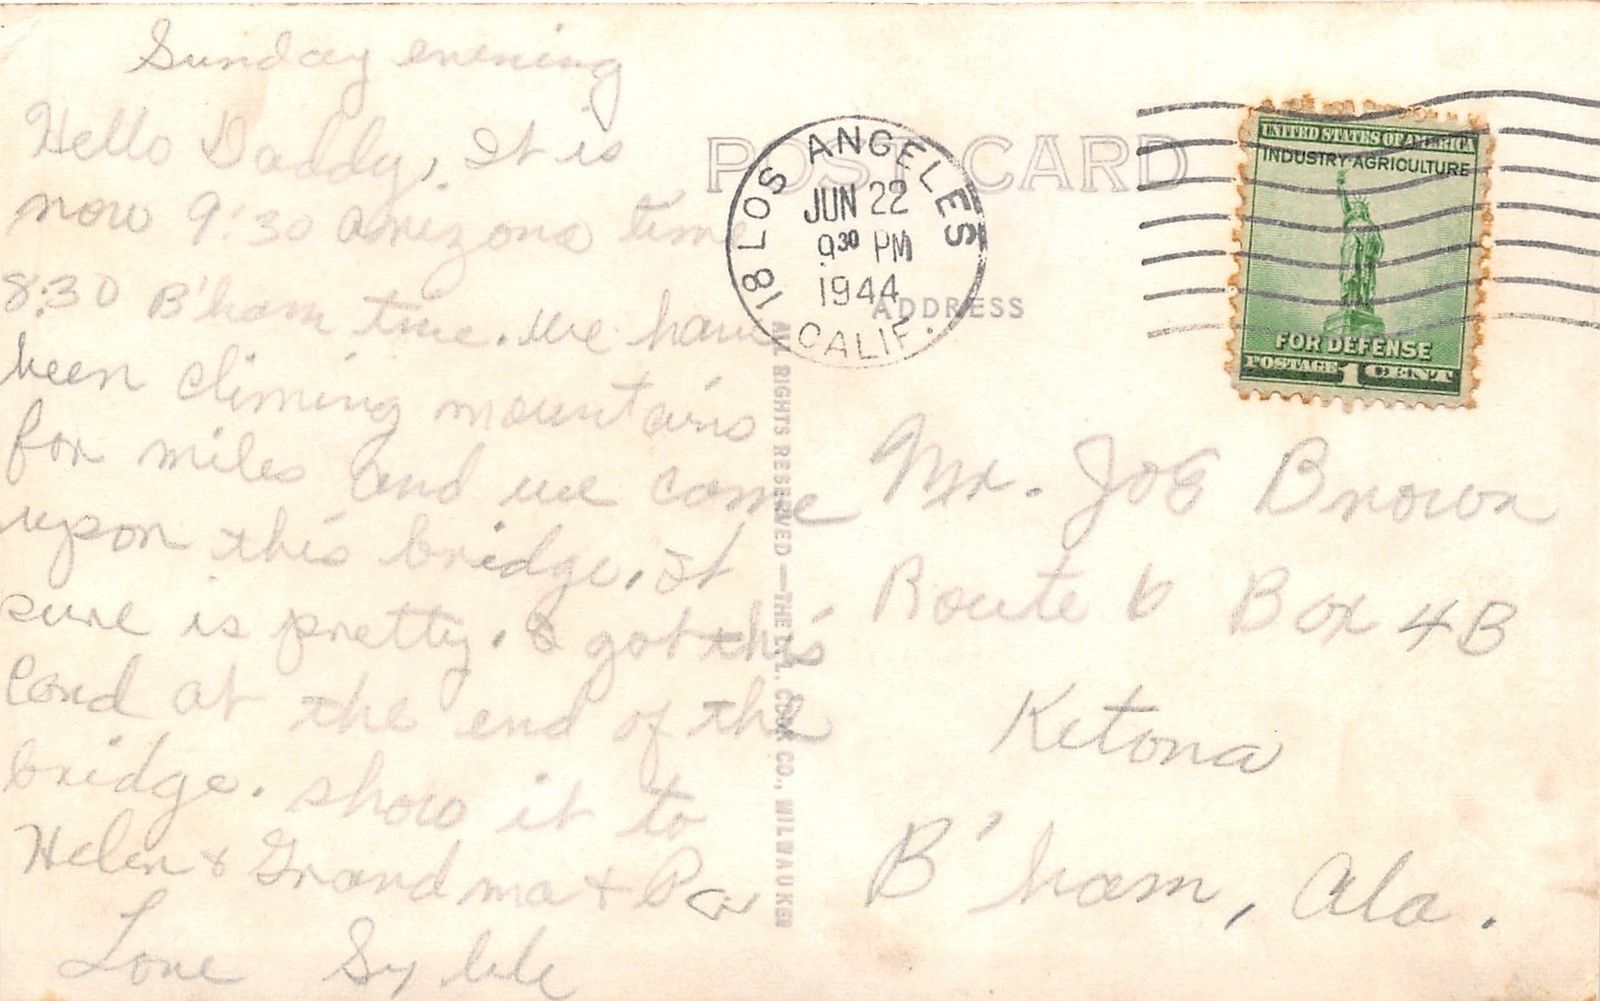 Sunday evening
Hello Daddy, It is
now 9:30 Arizona time
8:30 B'ham time. We have
been climing mountains
for miles and we come
upon this bridge. It
sure is pretty. I got this
Card at the end of the
bridge. Show it to
Helen & Grandma & Pa
Love
POST CARD
ADDRESS
18 LOS ANGELES
JUN 22
9 30 PM
1944
CALIF.
UNITED STATES OF AMERICA
INDUSTRY·AGRICULTURE
FOR DEFENSE
POSTAGE 1 CENT
ALL RIGHTS RESERVED—THE E. C. CO., MILWAUKEE
Mr. JOE Brown
Route 6 Box 4B
Ketona
B'ham, Ala.